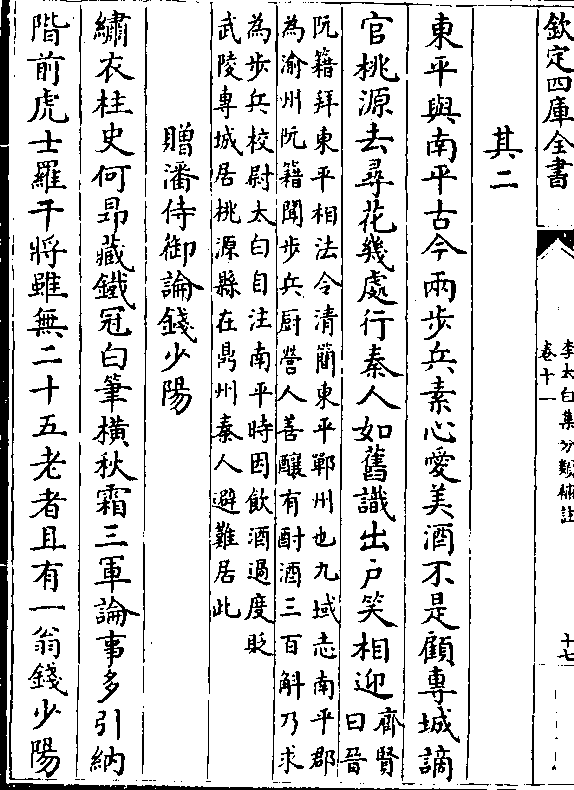 欽定四庫全書
李太白集分類補註
卷十一
十七
其二
東平與南平古今兩步兵素心愛美酒不是顧專城謫
官桃源去尋花幾處行秦人如舊識出户笑相迎
齊賢
曰晉
阮籍拜東平相法令清簡東平鄆州也九域志南平郡
為渝州阮籍聞步兵厨營人善釀有酎酒三百斛乃求
為步兵校尉太白自注南平時因飲酒過度貶
武陵專城居桃源縣在鼎州秦人避難居此
贈潘侍御論錢少陽
繡衣柱史何昻藏鐵冠白筆橫秋霜三軍論事多引納
階前虎士羅干將雖無二十五老者且有一翁錢少陽